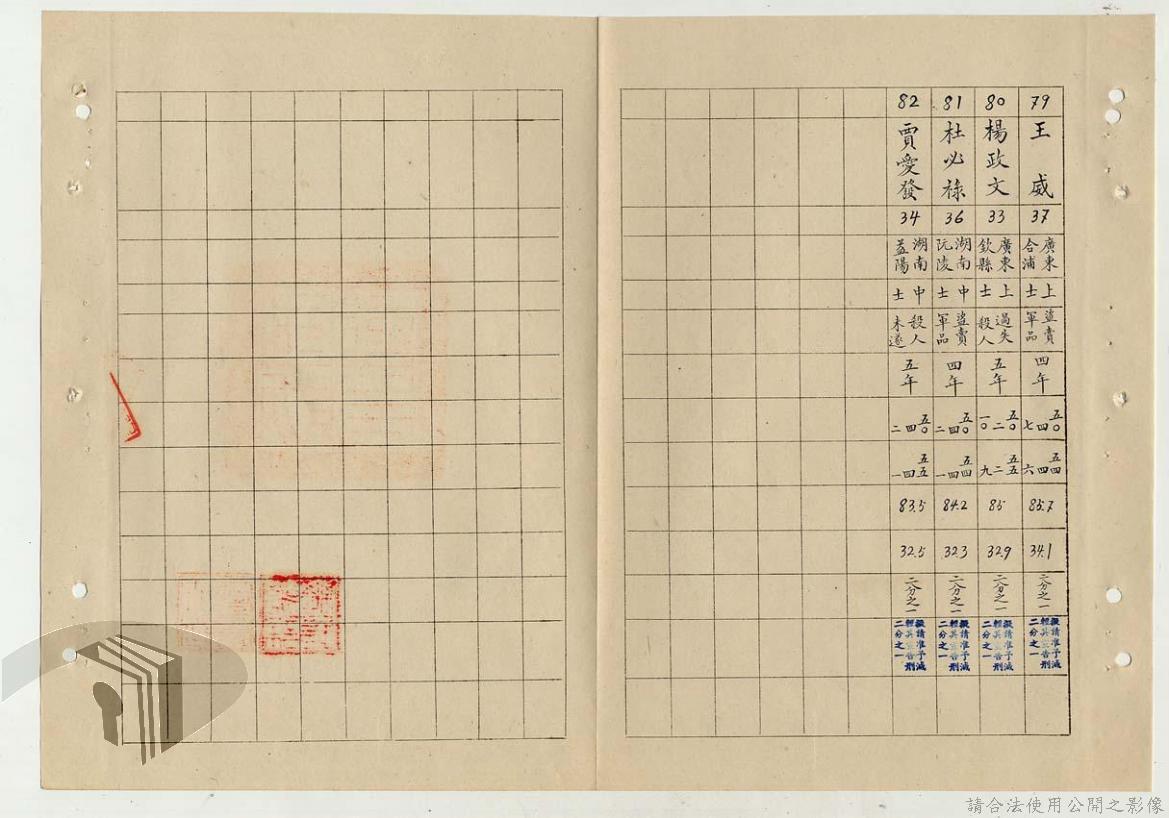 79
王威
37
廣東
合浦
上士
盜賣
軍品
四年
五〇 四 七
五四 四 六
85.7
34.1
二分之一
擬請准予減
輕其宣告刑
二分之一
80
楊政文
33
廣東
欽縣
上士
過失
殺人
五年
五〇 二 一〇
五五 二 九
85
32.9
二分之一
擬請准予減
輕其宣告刑
二分之一
81
杜必祿
36
湖南
阮陵
中士
盜賣
軍品
四年
五〇 四 二
五四 四 一
84.2
32.3
二分之一
擬請准予減
輕其宣告刑
二分之一
82
賈愛發
34
湖南
益陽
中士
殺人
未遂
五年
五〇 四 二
五五 四 一
83.5
32.5
二分之一
擬請准予減
輕其宣告刑
二分之一
請合法使用公開之影像